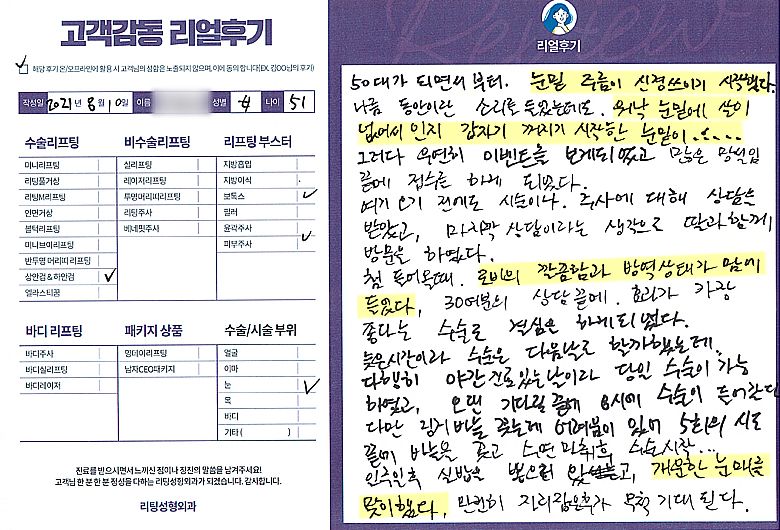 고객감동 리얼후기
해당 후기 온/오프라인에 활용 시 고객님의 성함은 노출되지 않으며, 이에 동의 합니다(EX. 김OO님의 후기)
작성일 2021년 8월 10일 이름 성별 여 나이 51
수술리프팅
미니리프팅
리팅풀거상
리팅M리프팅
안면거상
볼턱리프팅
미니브이리프팅
반투명 머리띠 리프팅
상안검 & 하안검
엘라스티꿈
비수술리프팅
실리프팅
레이저리프팅
투명머리띠리프팅
리팅주사
비네핏주사
리프팅 부스터
지방흡입
지방이식
보톡스
필러
윤곽주사
피부주사
바디 리프팅
바디주사
바디실리프팅
바디레이저
패키지 상품
명데이리프팅
남자CEO패키지
수술/시술 부위
얼굴
이마
눈
목
바디
기타 ( )
진료를 받으시면서 느끼신 점이나 칭찬의 말씀을 남겨주세요!
고객님 한 분 한 분 정성을 다하는 리팅성형외과가 되겠습니다. 감사합니다.
리팅성형외과
Review
리얼후기
50대가 되면서부터. 눈밑 주름이 신경쓰이기 시작했다.
나름 동안이란 소리를 들었는데도. 워낙 눈밑에 살이
없어서 인지 갑자기 꺼지기 시작한 눈밑이.....
그러다 우연히 이벤트를 보게되었고 많은 망설임
끝에 접수를 하게 되었다.
여기 오기 전에도 시술이나. 주사에 대해 상담은
받았고, 마지막 상담이라는 생각으로 딸과함께
방문을 하였다.
첨 들어올때. 로비의 깔끔함과 방역상태가 맘에
들었다, 30여분의 상담 끝에. 효과가 가장
좋다는 수술로 결심은 하게되었다.
늦은시간이라 수술은 다음날로 할까했는데.
다행히 야간진료있는날이라 당일 수술이 가능
하였고, 오랜 기다림 끝에 8시에 수술이 들어갔다
다만 링거 바늘 꽂는데 어려움이 있어 5회의 시도
끝에 바늘을 꽂고 수면 마취후 수술시작...
일주일후 실밥을 뽑으러 왔고, 개운한 눈매를
맞이했다, 만전히 자리잡은후가 무척 기대된다.